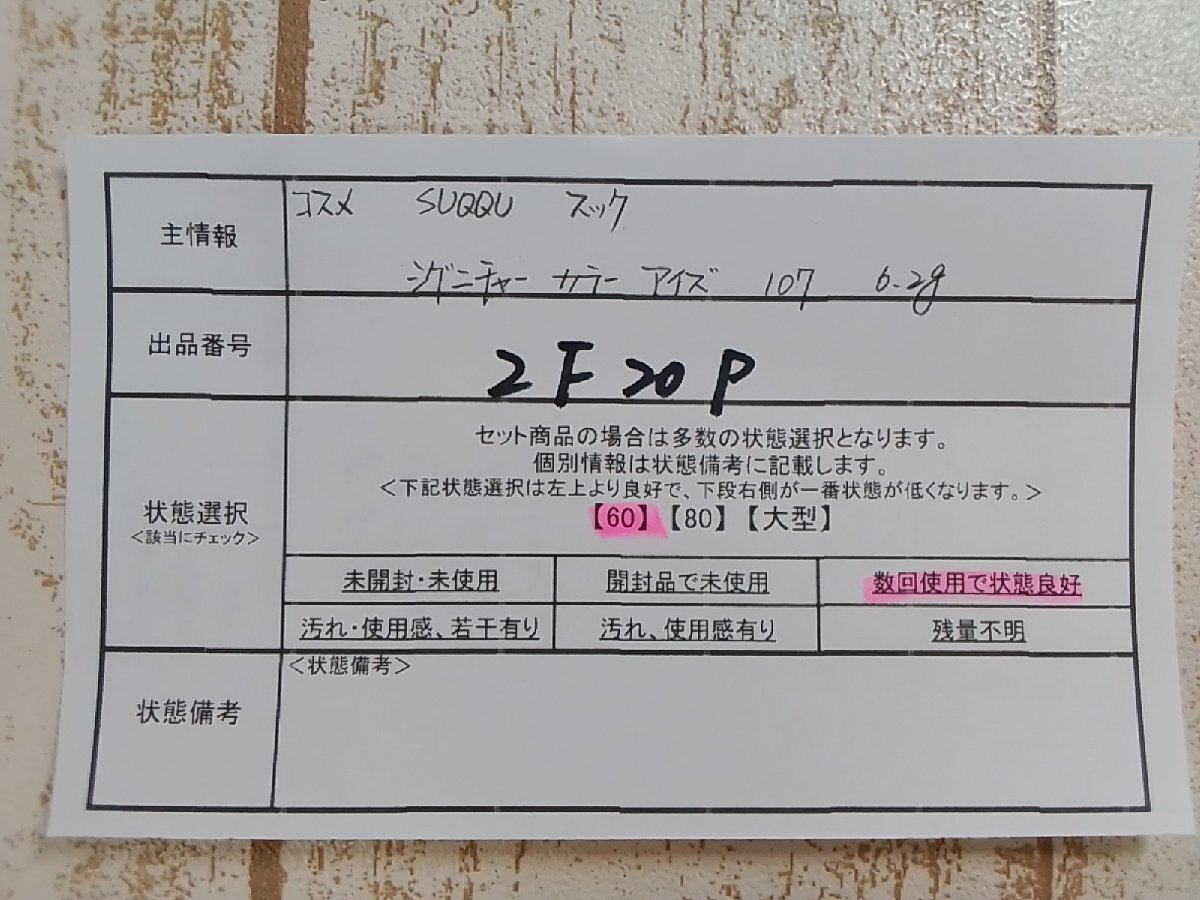 主情報
コスメ SUQQU スック
シグニチャー カラー アイズ 107 6.2g
出品番号
2F20P
状態選択
<該当にチェック>
セット商品の場合は多数の状態選択となります。
個別情報は状態備考に記載します。
<下記状態選択は左上より良好で、下段右側が一番状態が低くなります。>
【60】【80】【大型】
未開封・未使用 開封品で未使用 数回使用で状態良好
汚れ・使用感、若干有り 汚れ、使用感有り 残量不明
状態備考
<状態備考>